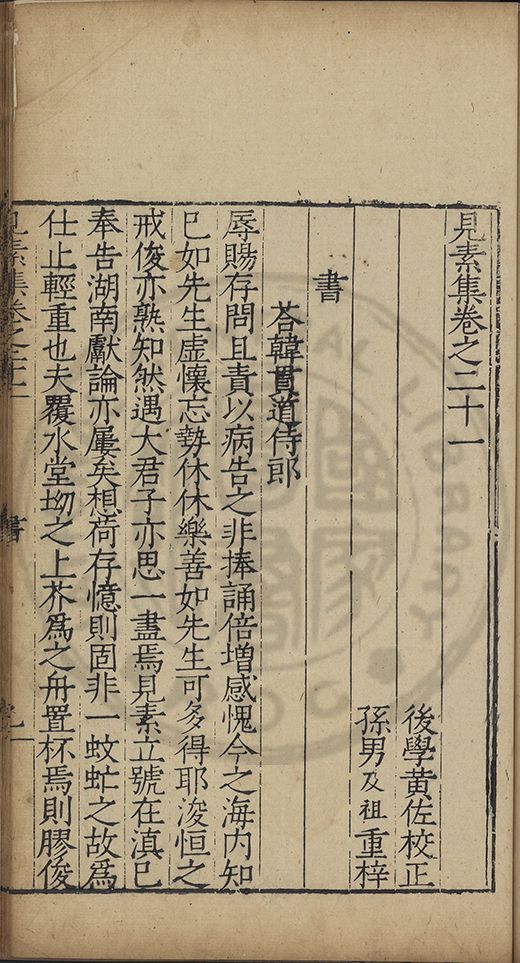 見素集卷之二十一
後學黃佐校正
孫男及祖重梓
書
荅韓貫道侍郎
辱賜存問且責以病告之非捧誦倍增感愧今之海内知
巳如先生虛懷忘勢休休樂善如先生可多得耶浚恒之
戒俊亦熟知然遇大君子亦思一盡焉見素立號在滇已
奉告湖南獻論亦屢矣想荷存憶則固非一蚊虻之故爲
仕止輕重也夫覆水堂坳之上芥爲之舟置杯焉則膠俊
見素集卷之二十一
書